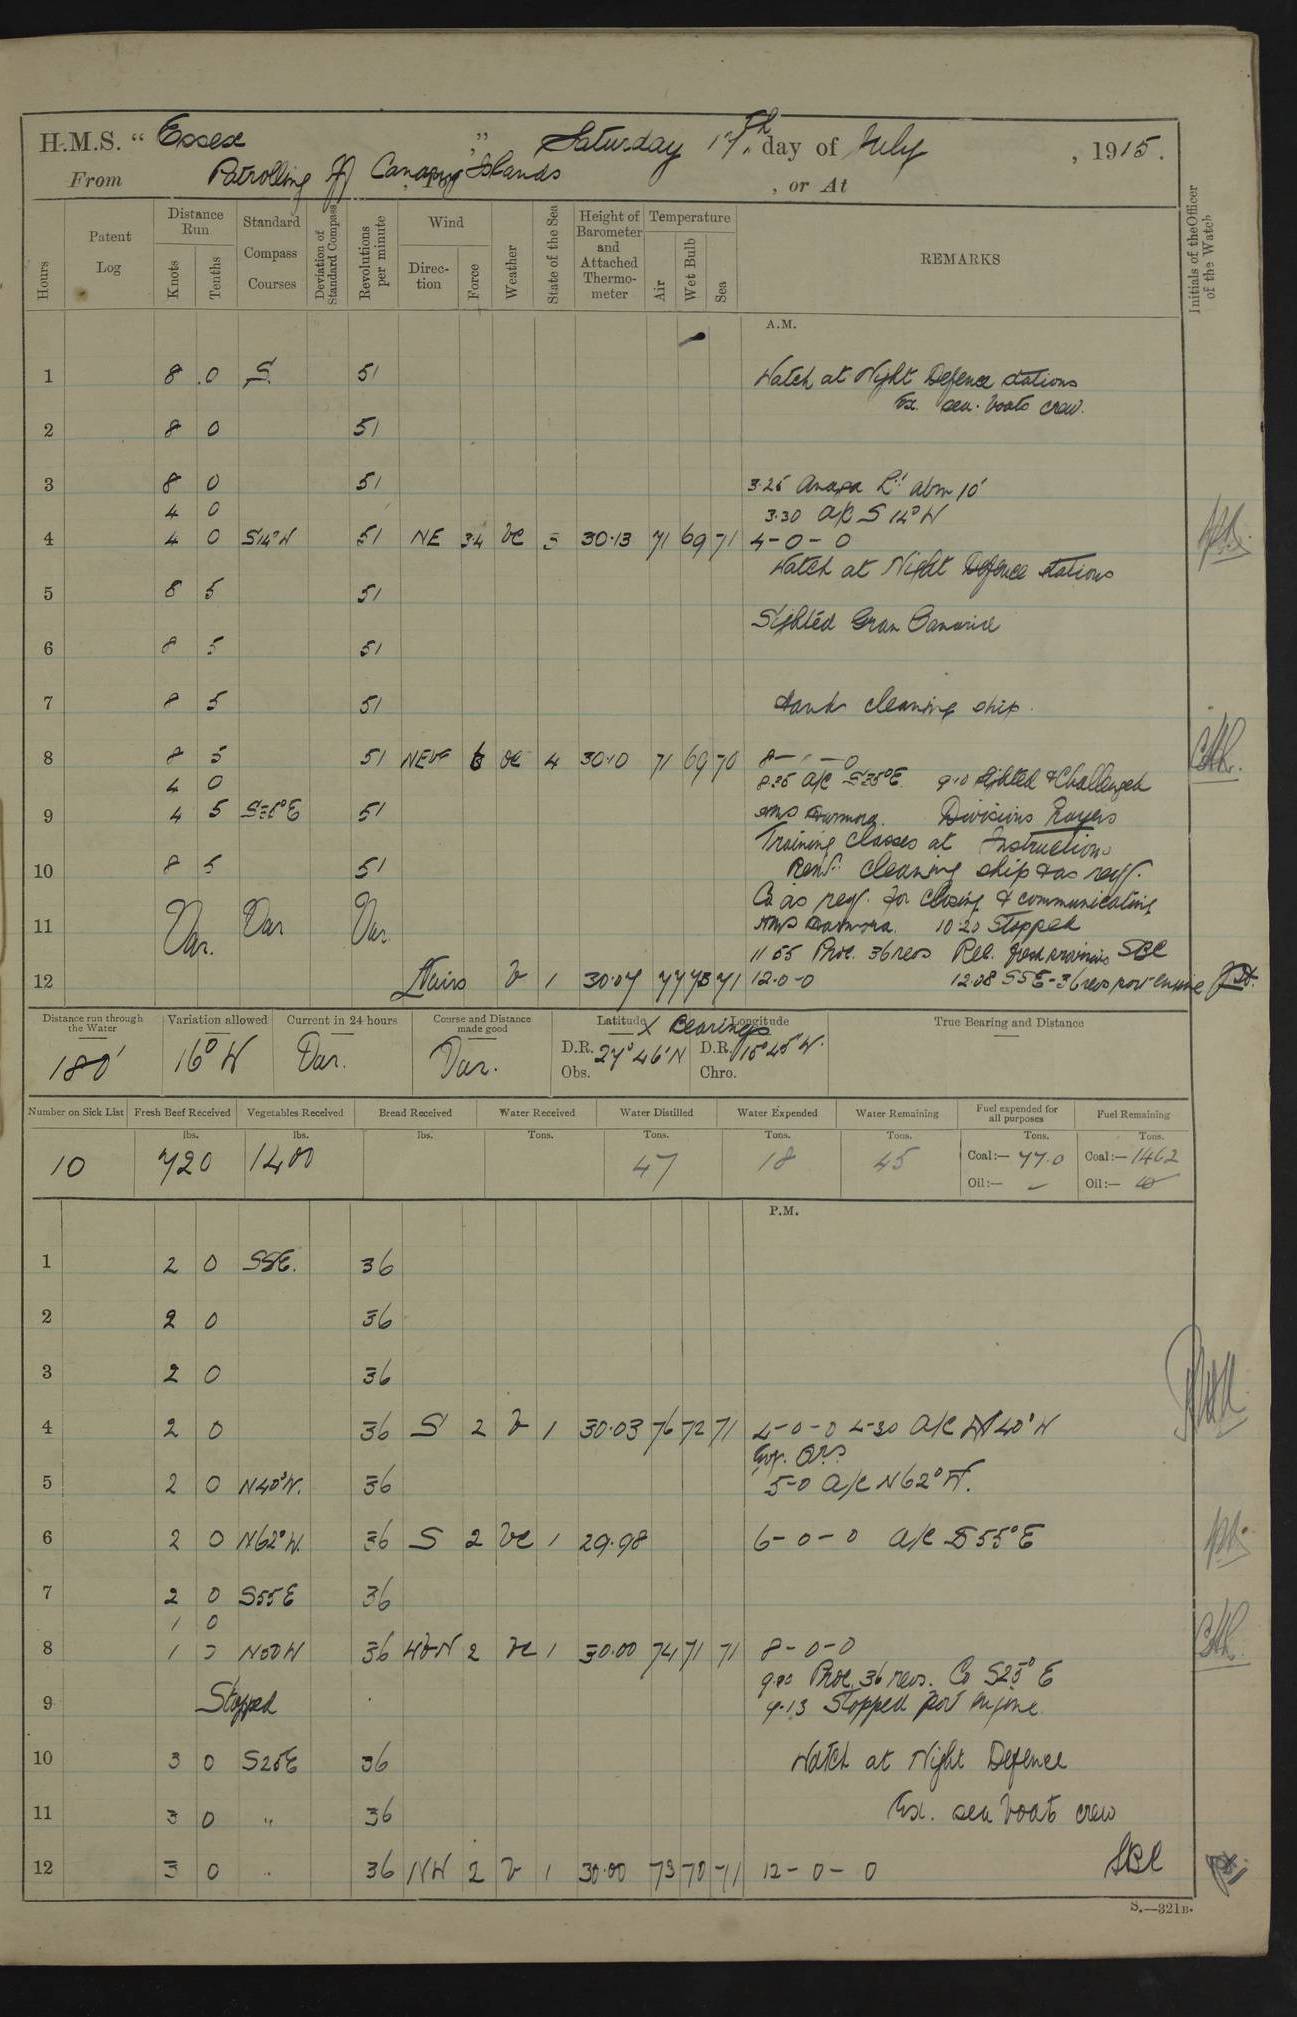 H.M.S. “ Essex ” Saturday 17th day of July , 1915.
From Patrolling off Canary Islands , or At
Hours
Patent Log
Distance Run
Knots
Tenths
Standard Compass Courses
Deviation of Standard Compass
Revolutions per minute
Wind
Direction
Force
Weather
State of the Sea
Height of Barometer and Attached Thermometer
Temperature
Air
Wet Bulb
Sea
REMARKS
Initials of the Officer of the Watch
A.M.
1 8 0 S. 51 Watch at Night Defence stations
Ex. sea-boats crew.
2 8 0 51
3 8 0 51 3.25 Anaga Lt abm 10'
4 0 3.30 A/C S 14° W
4 4 0 S14°W 51 NE 3.4 bc 3 30.13 71 69 71 4-0-0
Watch at Night Defence stations
5 8 5 51
Sighted Gran Canaria
6 8 5 51
7 8 5 51 Hands cleaning ship.
8 8 5 51 5 bc 4 30.10 71 69 70 8- -0
4 0 8.35 A/C S35°E. 9.10 Sighted & Challenged
9 4 5 S35°E 51 HMS Carmora. Divisions Prayers
Training Classes at Instructions
10 8 5 51 Remr. cleaning ship & as req.
Co as req. for closing & communicating
11 Var. Var Var. HMS Carmora. 10.20 Stopped
11 55 Proc. 36 revs Rec. fresh provisions SBC
12 Nairs b 1 30.07 77 73 71 12.0-0 12.08 SSE-36 revs port engine
Distance run through the Water 180'
Variation allowed 16° W
Current in 24 hours Var.
Course and Distance made good Var.
Latitude Longitude X Bearings
D.R. 27° 46' N D.R. 15° 45' W.
Obs. Chro.
True Bearing and Distance
Number on Sick List Fresh Beef Received Vegetables Received Bread Received Water Received Water Distilled Water Expended Water Remaining Fuel expended for all purposes Fuel Remaining
lbs. lbs. lbs. Tons. Tons. Tons. Tons. Tons. Tons.
10 720 1400 47 18 45 Coal:— 77.0 Coal:— 1462
Oil:— – Oil:—
P.M.
1 2 0 SSE. 36
2 2 0 36
3 2 0 36
4 2 0 36 S 2 b 1 30.03 76 72 71 4-0-0 4-30 A/C N 40° W
Evg. Qrs.
5 2 0 N40°W. 36 5-0 A/C N62° W.
6 2 0 N62°W. 36 S 2 bc 1 29.98 6-0-0 A/C S 55° E
7 2 0 S55E 36
1 0
8 1 0 N50W 36 WbN 2 bc 1 30.00 74 71 71 8-0-0
Proc. 36 revs. Co S25° E
9 Stopped 9.13 Stopped port engine
10 3 0 S25E 36 Watch at Night Defence
11 3 0 " 36 Ex. sea boats crew
12 3 0 " 36 NW 2 b 1 30.00 73 70 71 12-0-0 SBC
S.—321B.